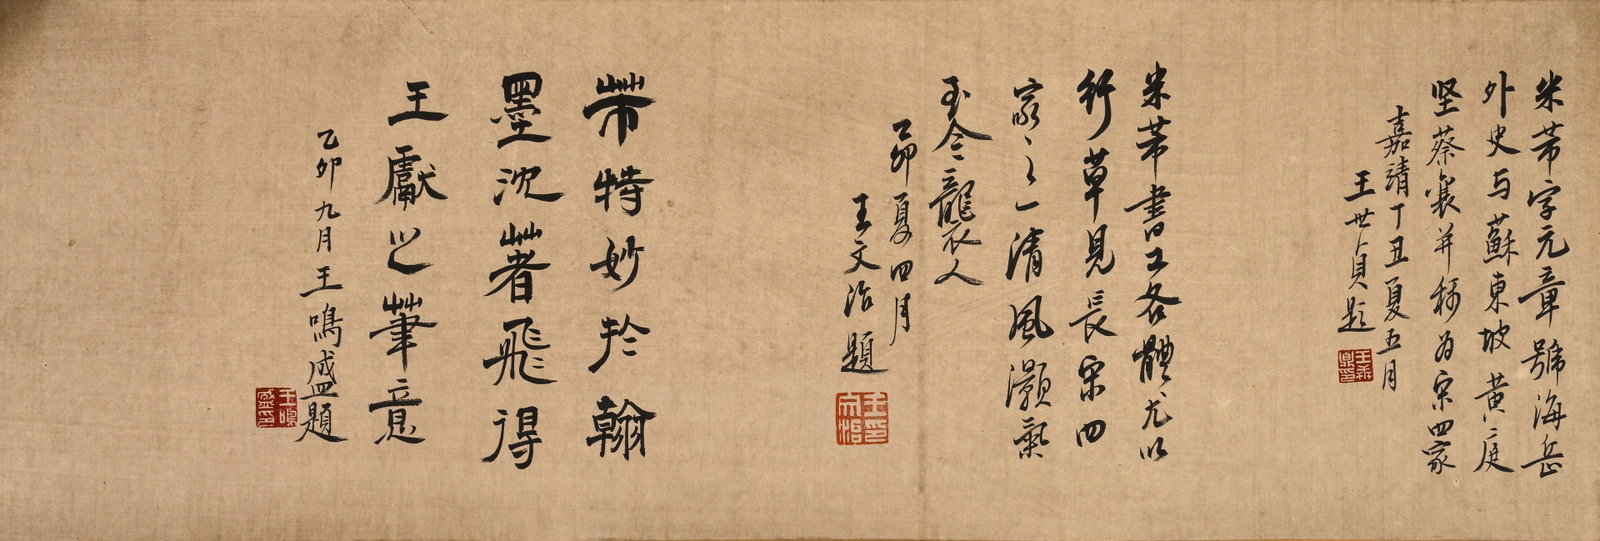 米芾字元章號海岳
外史与蘇東坡黄庭
坚蔡襄并称为宋四家
嘉靖丁丑夏五月
王世貞题
米芾書工各體尤以
行草見長宋四
家之一清風灝氣
令襲人
乙卯夏四月
王文治題
芾特妙於翰
墨沈著飛得
王獻之筆意
乙卯九月王鳴盛題
王鳴盛印